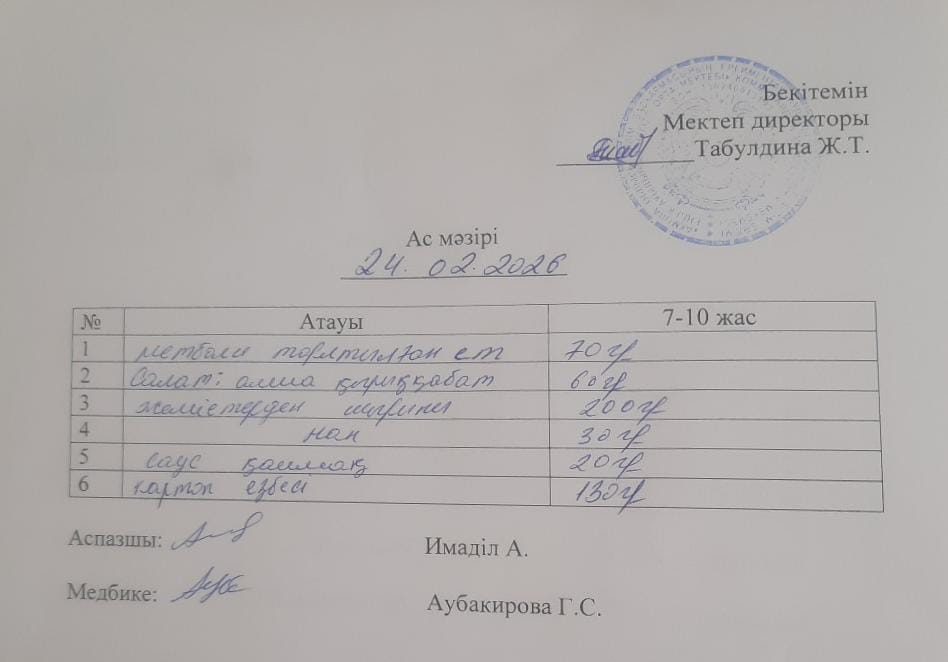 Бекітемін
Мектеп директоры
Табулдина Ж.Т.
Ас мәзірі
24. 02. 2026
№ Атауы 7-10 жас
1 метболи тартылған ет 70 гр
2 Салат: алма қырыққабат 60 гр
3 жемістерден шырыны 200 гр
4 нан 30 гр
5 саус қаймақ 20 гр
6 картоп езбесі 130 гр
Аспазшы: Имаділ А.
Медбике: Аубакирова Г.С.